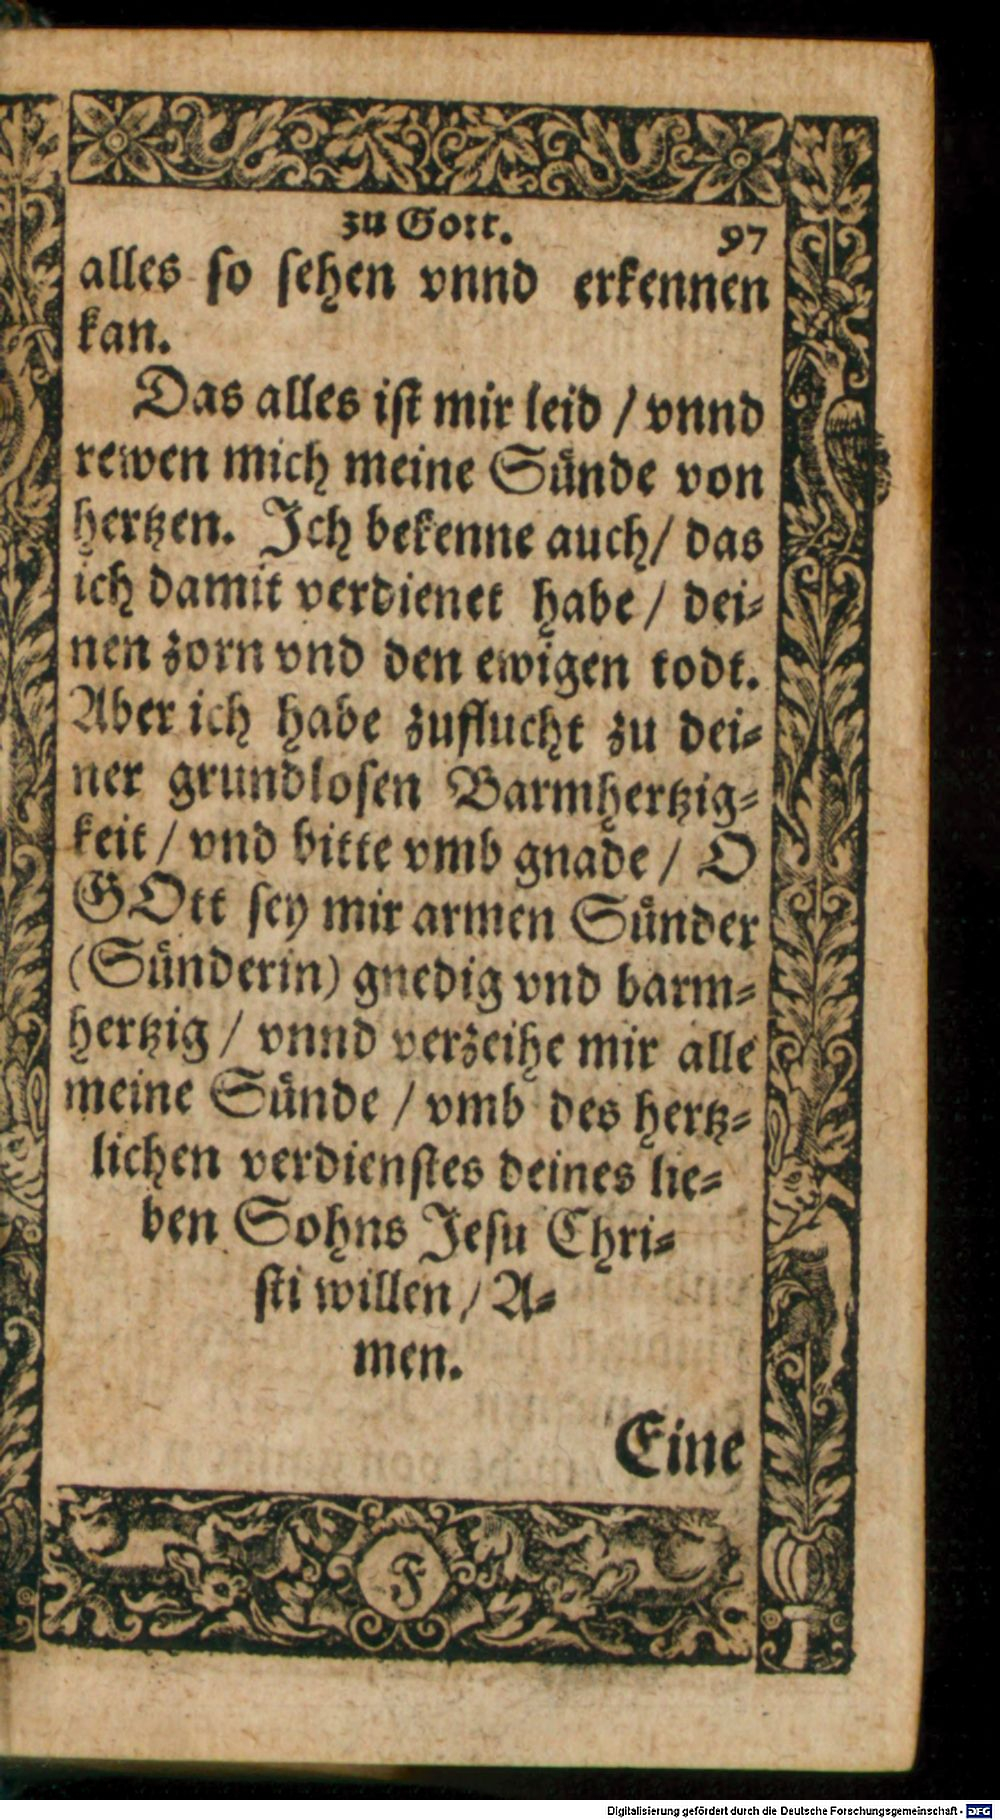 zu Gott. 97
alles so sehen vnnd erkennen
kan.
Das alles ist mir leid / vnnd
rewen mich meine Sünde von
hertzen. Ich bekenne auch / das
ich damit verdienet habe / dei⸗
nen zorn vnd den ewigen todt.
Aber ich habe zuflucht zu dei⸗
ner grundlosen Barmhertzig⸗
keit / vnd bitte vmb gnade / O
GOtt sey mir armen Sünder
(Sünderin) gnedig vnd barm⸗
hertzig / vnnd verzeihe mir alle
meine Sünde / vmb des hertz⸗
lichen verdienstes deines lie⸗
ben Sohns Jesu Chri⸗
sti willen / A⸗
men.
Eine
F
Digitalisierung gefördert durch die Deutsche Forschungsgemeinschaft - DFG